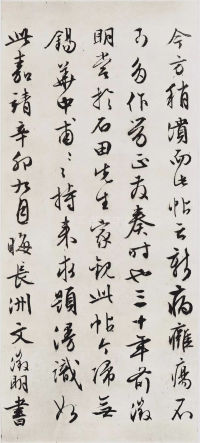 今方稍潰而此帖云新病癰瘍不
可多作勞正在奏時也三十年前徵
明嘗於石田先生家觀此帖今歸無
錫華中甫〻持來求題漫識如
此嘉靖辛卯九月晦長洲文徵明書